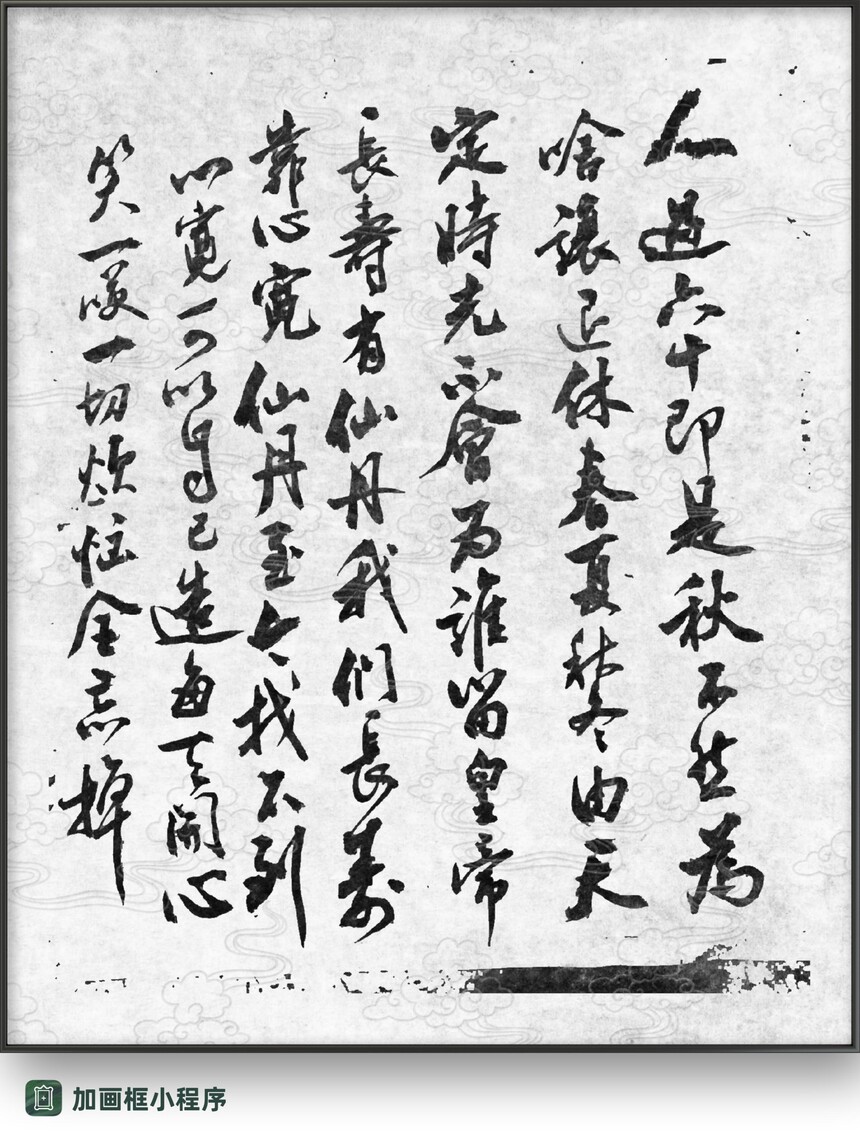 人過六十即是秋不然為
啥讓退休春夏秋冬由天
定時光不會为誰留皇帝
長壽有仙丹我們長壽
靠心寬仙丹至今找不到
心寬可以自己造每天開心
笑一咲一切煩惱全忘掉
加画框小程序